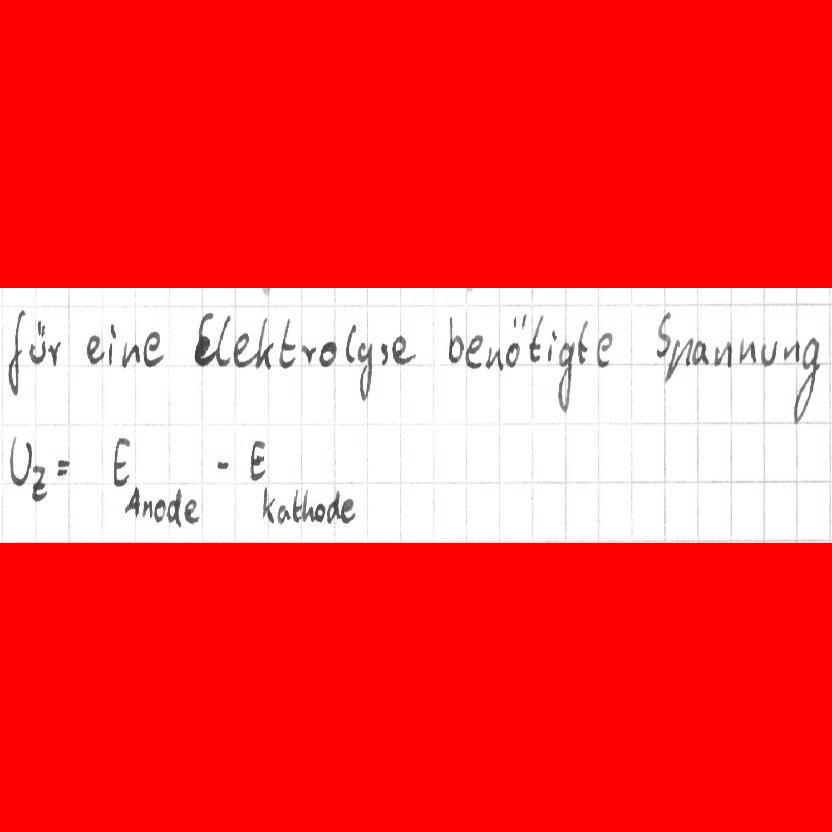 für eine Elektrolyse benötigte Spannung
U_z = E_Anode - E_Kathode